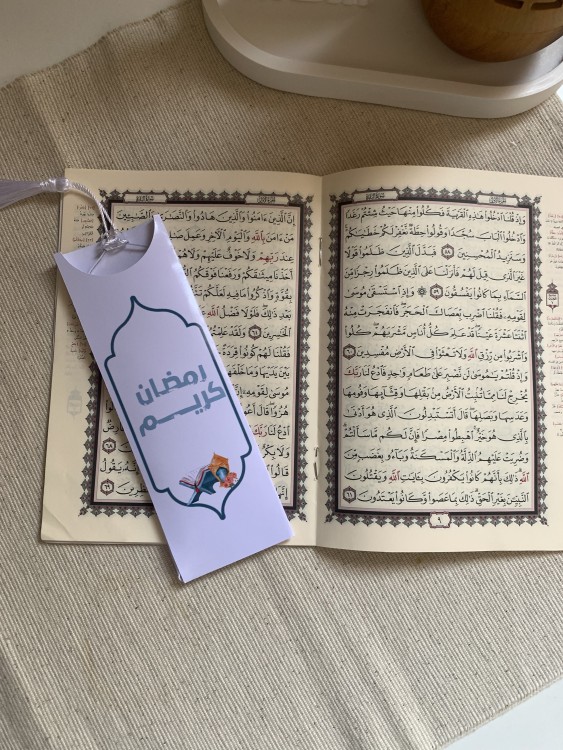 وَإِذْ قُلْنَا ٱدْخُلُوا۟ هَٰذِهِ ٱلْقَرْيَةَ فَكُلُوا۟ مِنْهَا حَيْثُ شِئْتُمْ رَغَدًا
وَٱدْخُلُوا۟ ٱلْبَابَ سُجَّدًا وَقُولُوا۟ حِطَّةٌ نَّغْفِرْ لَكُمْ خَطَٰيَٰكُمْ
وَسَنَزِيدُ ٱلْمُحْسِنِينَ ٥٨ فَبَدَّلَ ٱلَّذِينَ ظَلَمُوا۟ قَوْلًا
غَيْرَ ٱلَّذِى قِيلَ لَهُمْ فَأَنزَلْنَا عَلَى ٱلَّذِينَ ظَلَمُوا۟ رِجْزًا مِّنَ
ٱلسَّمَآءِ بِمَا كَانُوا۟ يَفْسُقُونَ ٥٩ ۞ وَإِذِ ٱسْتَسْقَىٰ مُوسَىٰ
لِقَوْمِهِۦ فَقُلْنَا ٱضْرِب بِّعَصَاكَ ٱلْحَجَرَ ۖ فَٱنفَجَرَتْ مِنْهُ
ٱثْنَتَا عَشْرَةَ عَيْنًا ۖ قَدْ عَلِمَ كُلُّ أُنَاسٍ مَّشْرَبَهُمْ ۖ كُلُوا۟
وَٱشْرَبُوا۟ مِن رِّزْقِ ٱللَّهِ وَلَا تَعْثَوْا۟ فِى ٱلْأَرْضِ مُفْسِدِينَ ٦٠
وَإِذْ قُلْتُمْ يَٰمُوسَىٰ لَن نَّصْبِرَ عَلَىٰ طَعَامٍ وَٰحِدٍ فَٱدْعُ لَنَا رَبَّكَ
يُخْرِجْ لَنَا مِمَّا تُنۢبِتُ ٱلْأَرْضُ مِنۢ بَقْلِهَا وَقِثَّآئِهَا وَفُومِهَا
وَعَدَسِهَا وَبَصَلِهَا ۖ قَالَ أَتَسْتَبْدِلُونَ ٱلَّذِى هُوَ أَدْنَىٰ
بِٱلَّذِى هُوَ خَيْرٌ ۚ ٱهْبِطُوا۟ مِصْرًا فَإِنَّ لَكُم مَّا سَأَلْتُمْ ۗ
وَضُرِبَتْ عَلَيْهِمُ ٱلذِّلَّةُ وَٱلْمَسْكَنَةُ وَبَآءُو بِغَضَبٍ مِّنَ
ٱللَّهِ ۗ ذَٰلِكَ بِأَنَّهُمْ كَانُوا۟ يَكْفُرُونَ بِـَٔايَٰتِ ٱللَّهِ وَيَقْتُلُونَ
ٱلنَّبِيِّـۧنَ بِغَيْرِ ٱلْحَقِّ ۗ ذَٰلِكَ بِمَا عَصَوا۟ وَّكَانُوا۟ يَعْتَدُونَ ٦١
٩
إِنَّ ٱلَّذِينَ ءَامَنُوا۟ وَٱلَّذِينَ هَادُوا۟ وَٱلنَّصَٰرَىٰ وَٱلصَّٰبِـِٔينَ
مَنْ ءَامَنَ بِٱللَّهِ وَٱلْيَوْمِ ٱلْـَٔاخِرِ وَعَمِلَ
عِندَ رَبِّهِمْ وَلَا خَوْفٌ عَلَيْهِمْ وَلَا
أَخَذْنَا مِيثَٰقَكُمْ وَرَفَعْنَا فَوْقَكُمُ
بِقُوَّةٍ وَٱذْكُرُوا۟ مَا فِيهِ لَعَلَّكُمْ
بَعْدِ ذَٰلِكَ ۖ فَلَوْلَا
ٱلْخَٰسِرِينَ ٦٤ وَلَقَدْ عَلِمْتُمُ
فَقُلْنَا لَهُمْ كُونُوا۟ قِرَدَةً
بَيْنَ يَدَيْهَا وَمَا خَلْفَهَا
مُوسَىٰ لِقَوْمِهِۦٓ إِنَّ
هُزُوًا ۖ قَالَ أَعُوذُ
ٱدْعُ لَنَا رَبَّكَ
وَلَا بِكْرٌ
قَالُوا۟
رمضان
كريم